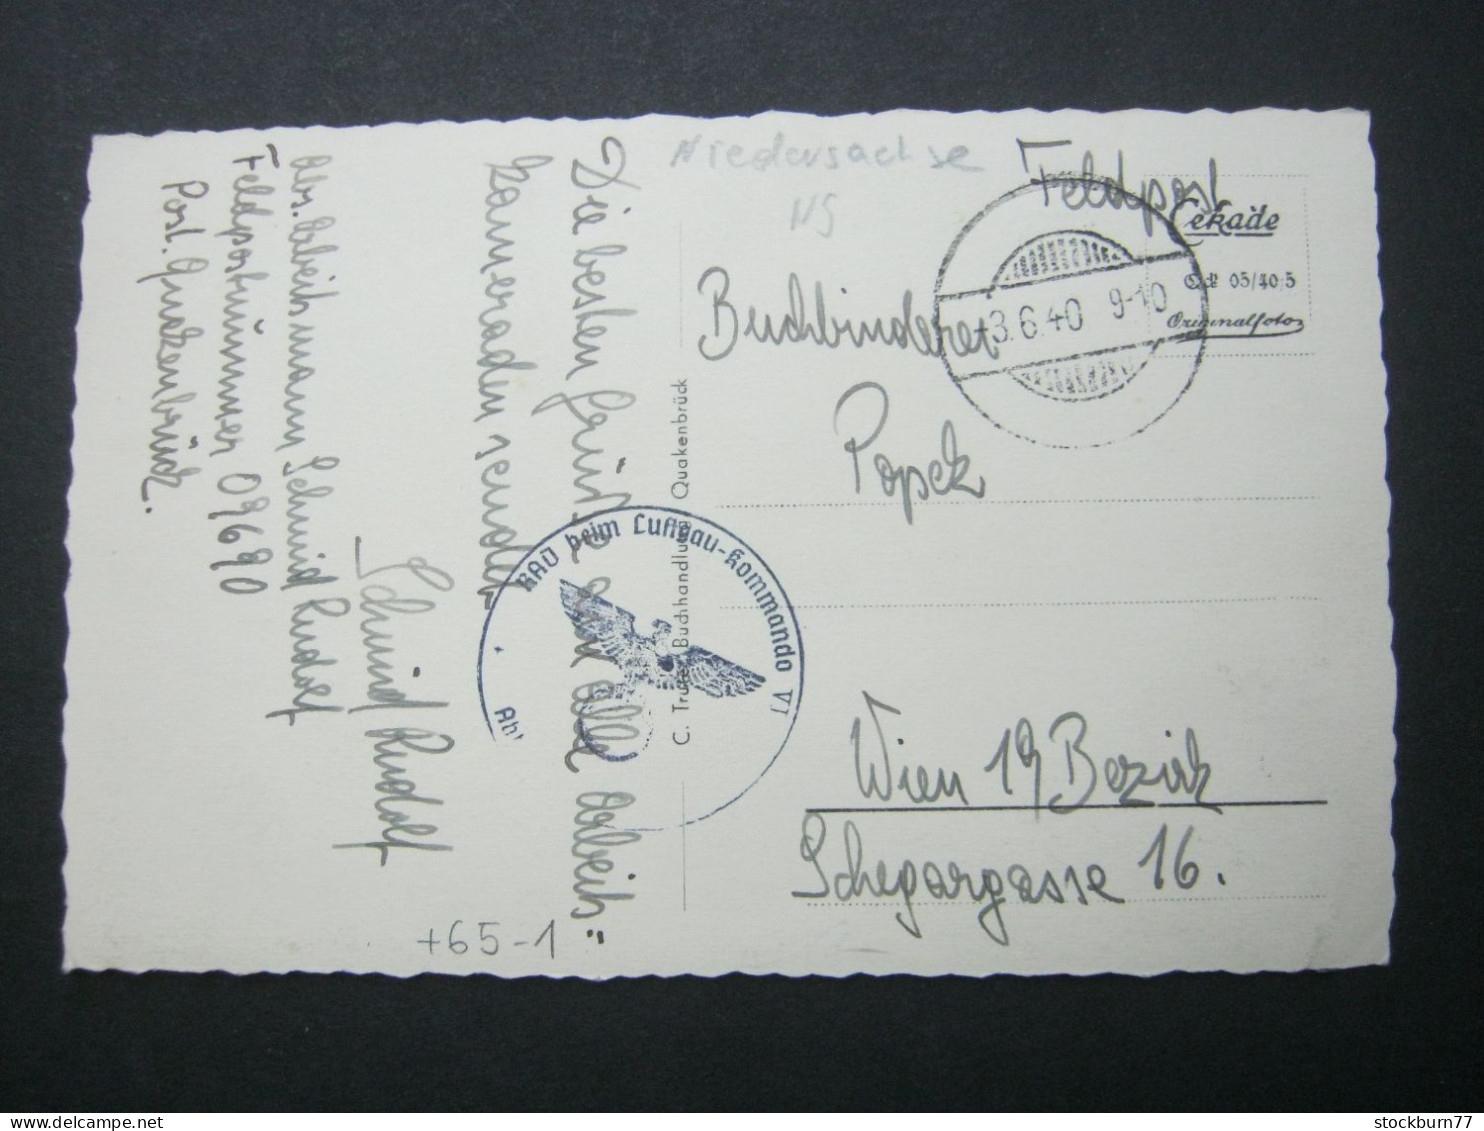 Niedersachse
NS
Feldpost
Cekade
Qd 05/40/5
Originalfoto
3.6.40 9-10
Buchbinderei
Popek
Wien 19 Bezirk
Schegargasse 16.
C. Trute, Buchhandlung, Quakenbrück
Die besten Grüße an alle Arbeits=
kameraden sendet
Schmid Rudolf
Abs. Arbeitsmann Schmid Rudolf
Feldpostnummer 09690
Post. Quakenbrück.
RAD beim Luftgau-Kommando VI
+65-1
stockburn77